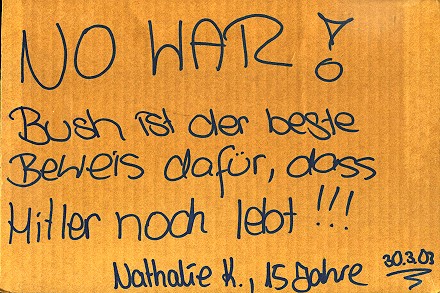 NO WAR!
Bush ist der beste
Beweis dafür, dass
Hitler noch lebt!!!
Nathalie K., 15 Jahre 30.3.03